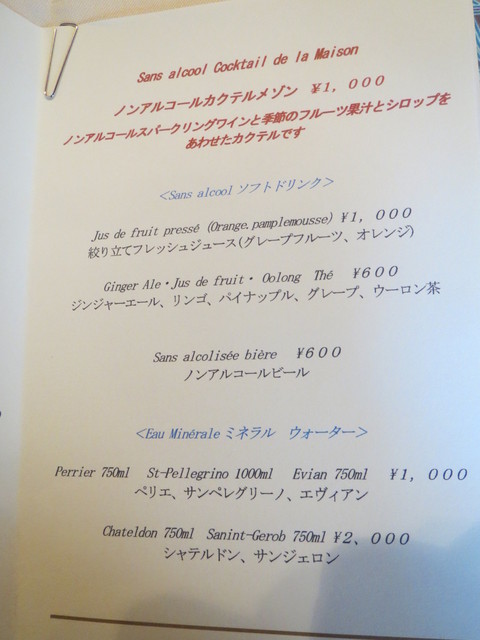 Sans alcool Cocktail de la Maison
ノンアルコールカクテルメゾン ¥1，000
ノンアルコールスパークリングワインと季節のフルーツ果汁とシロップを
あわせたカクテルです
<Sans alcool ソフトドリンク>
Jus de fruit pressé (Orange.pamplemousse) ¥1，000
絞り立てフレッシュジュース(グレープフルーツ、オレンジ)
Ginger Ale・Jus de fruit・ Oolong Thé ¥600
ジンジャーエール、リンゴ、パイナップル、グレープ、ウーロン茶
Sans alcolisée bière ¥600
ノンアルコールビール
<Eau Minérale ミネラル ウォーター>
Perrier 750ml St-Pellegrino 1000ml Evian 750ml ¥1，000
ペリエ、サンペレグリーノ、エヴィアン
Chateldon 750ml Sanint-Gerob 750ml ¥2、000
シャテルドン、サンジェロン